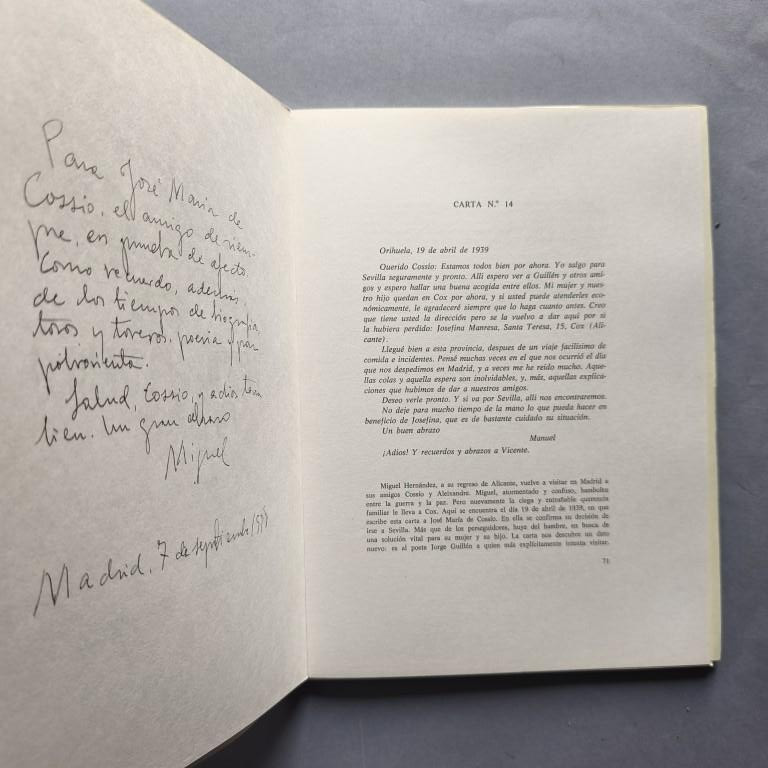 Para José María de
Cossío, el amigo de siem-
pre, en prueba de afecto.
Como recuerdo, además,
de los tiempos de biografía
toros y toreros, poesía y pan
polvorienta.
Salud, Cossío, y adiós tam
bien. Un gran abrazo
Miguel
Madrid, 7 de septiembre
CARTA N.º 14
Orihuela, 19 de abril de 1939
Querido Cossío: Estamos todos bien por ahora. Yo salgo para
Sevilla seguramente y pronto. Allí espero ver a Guillén y otros ami-
gos y espero hallar una buena acogida entre ellos. Mi mujer y nues-
tro hijo quedan en Cox por ahora, y si usted puede atenderles eco-
nómicamente, le agradeceré siempre que lo haga cuanto antes. Creo
que tiene usted la dirección pero se la vuelvo a dar aquí por si
la hubiera perdido: Josefina Manresa, Santa Teresa, 15, Cox (Ali-
cante).
Llegué bien a esta provincia, despues de un viaje facilísimo de
comida e incidentes. Pensé muchas veces en el que nos ocurrió el día
que nos despedimos en Madrid, y a veces me he reído mucho. Aque-
llas colas y aquella espera son inolvidables, y, más, aquellas explica-
ciones que hubimos de dar a nuestros amigos.
Deseo verle pronto. Y si va por Sevilla, allí nos encontraremos.
No deje para mucho tiempo de la mano lo que pueda hacer en
beneficio de Josefina, que es de bastante cuidado su situación.
Un buen abrazo
Manuel
¡Adios! Y recuerdos y abrazos a Vicente.
Miguel Hernández, a su regreso de Alicante, vuelve a visitar en Madrid a
sus amigos Cossío y Aleixandre. Miguel, atormentado y confuso, bambolea
entre la guerra y la paz. Pero nuevamente la ciega y entrañable querencia
familiar le lleva a Cox. Aquí se encuentra el día 19 de abril de 1939, en que
escribe esta carta a José María de Cossío. En ella se confirma su decisión de
irse a Sevilla. Más que de los perseguidores, huya del hambre, en busca de
una solución vital para su mujer y su hijo. La carta nos descubre un dato
nuevo: es al poeta Jorge Guillén a quien más explícitamente intenta visitar.
71